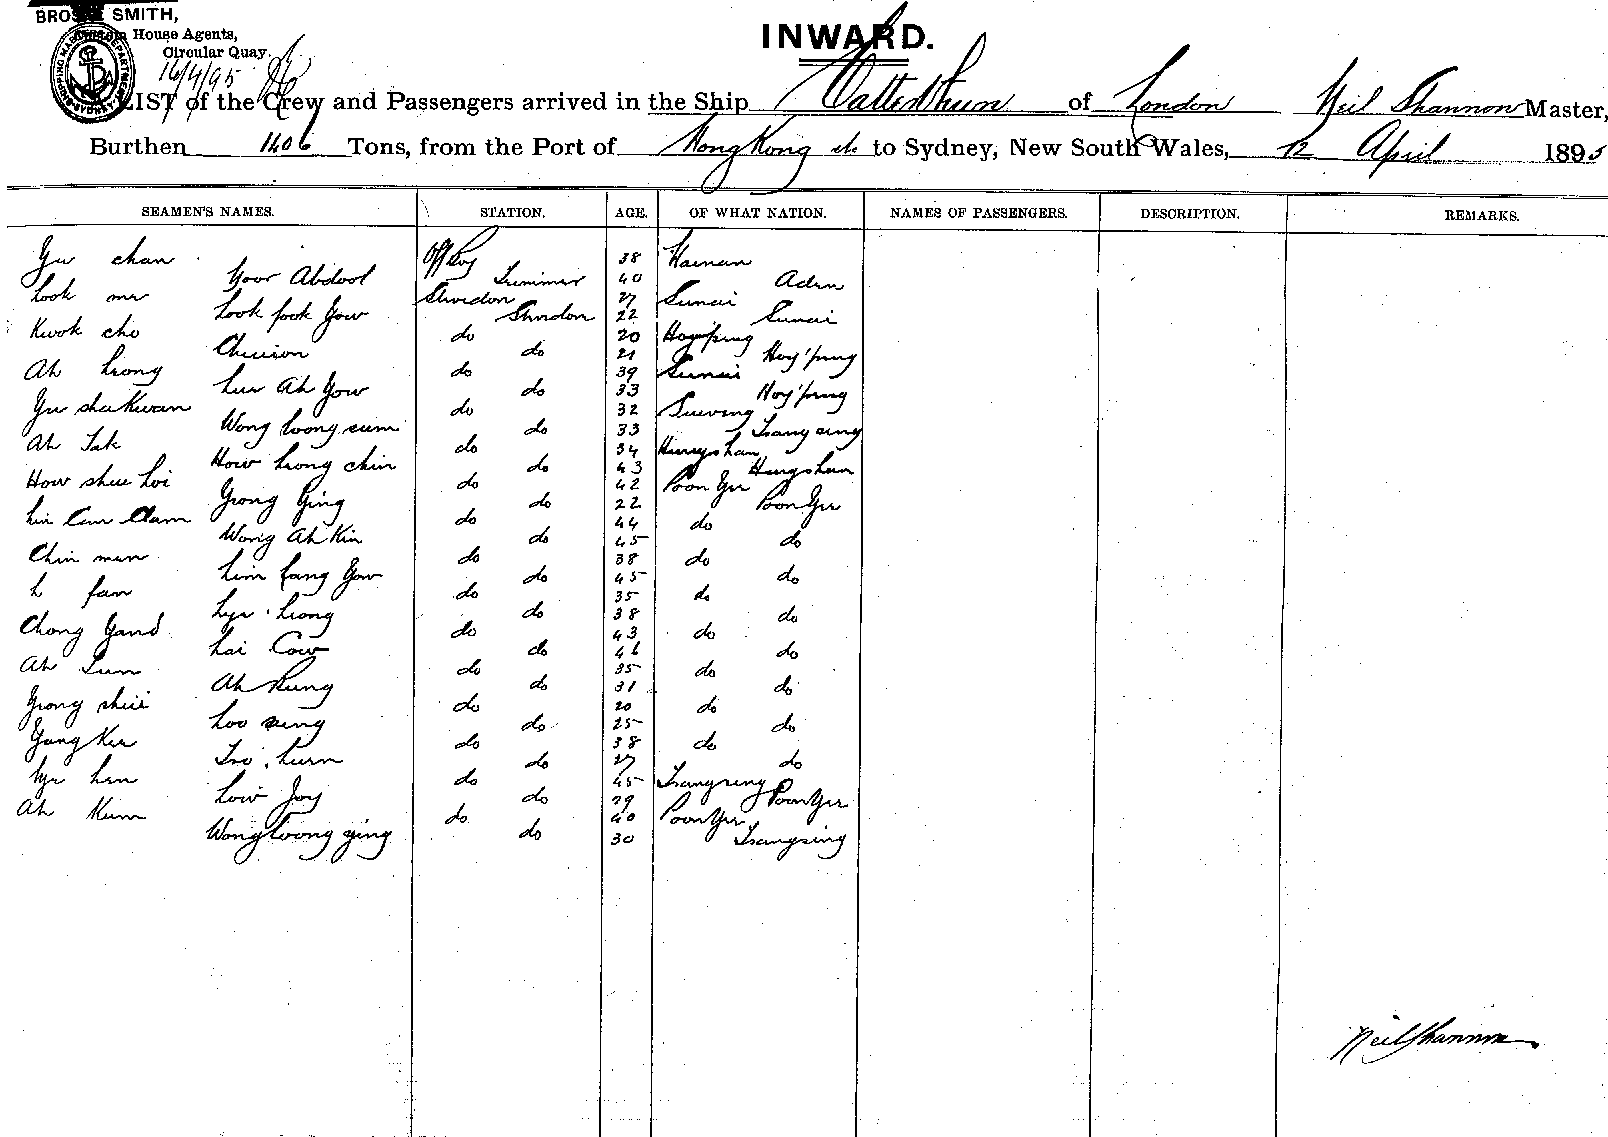 BRO SMITH,
House Agents,
Circular Quay.
16/4/95
INWARD.
LIST of the Crew and Passengers arrived in the Ship Catterthun of London Neil Shannon Master,
Burthen 1406 Tons, from the Port of Hong Kong etc to Sydney, New South Wales, 12 April 1895
SEAMEN'S NAMES. STATION. AGE. OF WHAT NATION. NAMES OF PASSENGERS. DESCRIPTION. REMARKS.
Yee chan Off Boy 38 Hainan
Noor Abdool Trimmer 40 Aden
Look me 27 Sunai
Look fook Yow 22 Sunai
Kwok cho do 20 Hoy'ping
do 21 Hoy'ping
Ah Leong do 39 Sunai
Lee Ah Yow do 33 Hoy'ping
Yee shee Kwan do 32
Wong Loong sum do 33 Tsangsing
Ah Tak do 34 Hungshan
How Leong chin do 43 Hungshan
How shee Loi do 42 Poon Yee
Yeong Ying do 22 Poon Yee
do 44 do
Wong Ah Kin do 45 do
Chin men do 38 do
Lim Yow do 45 do
L fan do 35 do
Lye Leong do 38 do
Chong do 43 do
Lai Cow do 46 do
Ah Sum do 35 do
Ah Kung do 31 do
Yeong shee do 20 do
Loo sung do 25 do
Yang Kee do 38 do
do 27 do
Lye Lin do 45 Tsangsing
Low Joy do 29 Poon Yee
Ah Kum do 40 Poon Yee
Wong Loong ying do 30 Tsangsing
Neil Shannon